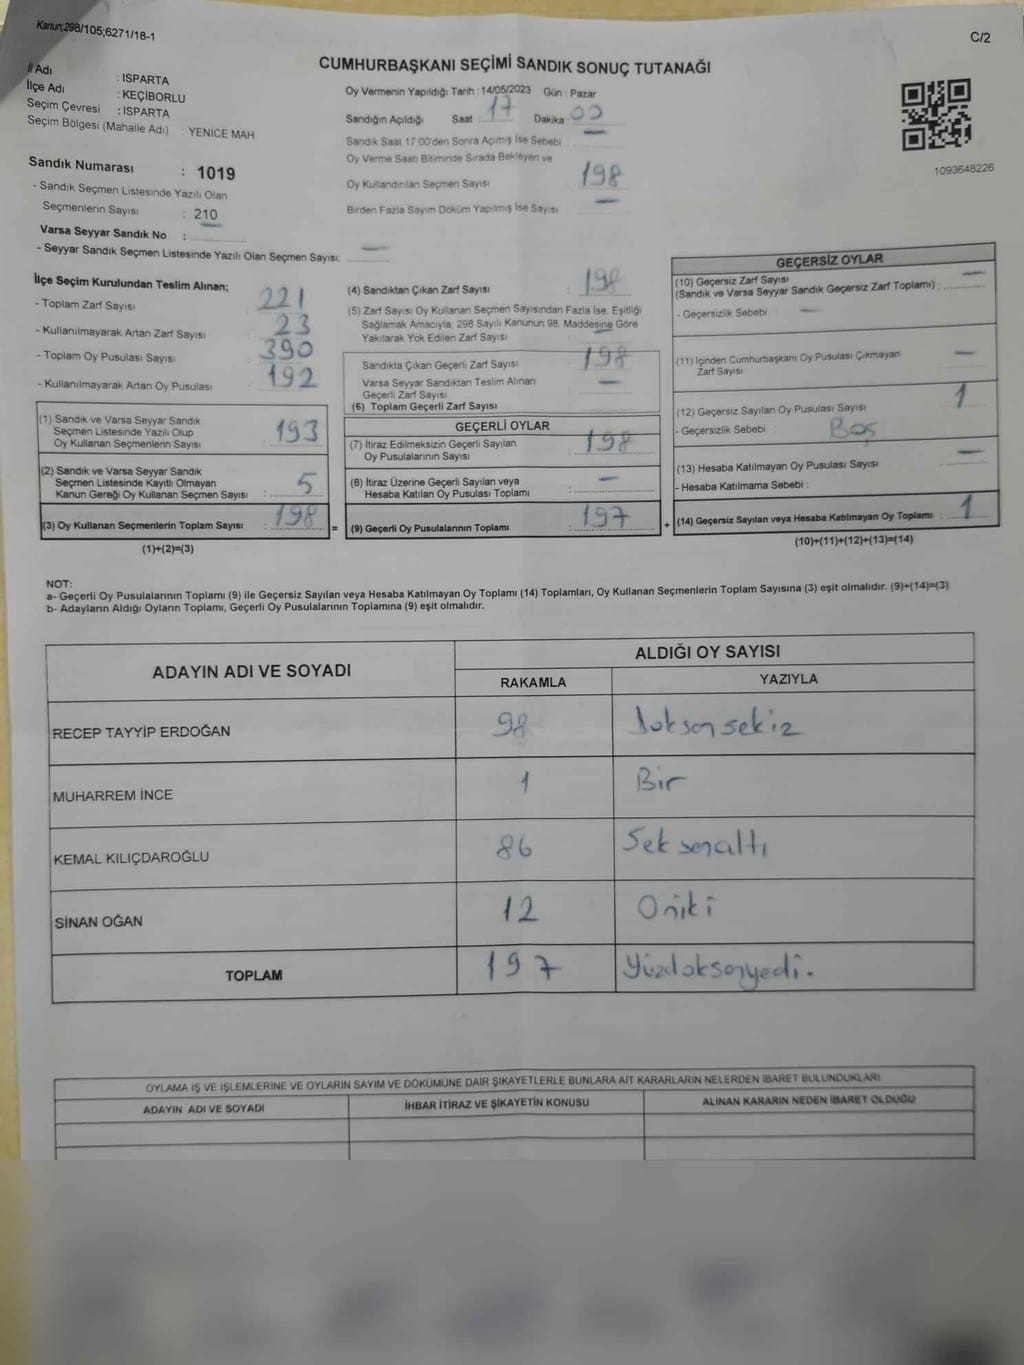 Kanun;298/105;6271/18-1
C/2
CUMHURBAŞKANI SEÇİMİ SANDIK SONUÇ TUTANAĞI
İl Adı : ISPARTA
İlçe Adı : KEÇİBORLU
Seçim Çevresi : ISPARTA
Seçim Bölgesi (Mahalle Adı) : YENİCE MAH
Sandık Numarası : 1019
- Sandık Seçmen Listesinde Yazılı Olan
Seçmenlerin Sayısı : 210
Varsa Seyyar Sandık No : —
- Seyyar Sandık Seçmen Listesinde Yazılı Olan Seçmen Sayısı: —
Oy Vermenin Yapıldığı Tarih : 14/05/2023 Gün : Pazar
Sandığın Açıldığı Saat : 17 Dakika : 00
Sandık Saat 17:00'den Sonra Açımış İse Sebebi —
Oy Verme Saati Bitiminde Sırada Bekleyen ve
Oy Kullandırılan Seçmen Sayısı 198
Birden Fazla Sayım Döküm Yapılmış İse Sayısı —
1093648226
İlçe Seçim Kurulundan Teslim Alınan;
- Toplam Zarf Sayısı 221
- Kullanılmayarak Artan Zarf Sayısı : 23
- Toplam Oy Pusulası Sayısı : 390
- Kullanılmayarak Artan Oy Pusulası : 192
(1) Sandık ve Varsa Seyyar Sandık
Seçmen Listesinde Yazılı Olup
Oy Kullanan Seçmenlerin Sayısı : 193
(2) Sandık ve Varsa Seyyar Sandık
Seçmen Listesinde Kayıtlı Olmayan
Kanun Gereği Oy Kullanan Seçmen Sayısı : 5
(3) Oy Kullanan Seçmenlerin Toplam Sayısı : 198 =
(1)+(2)=(3)
(4) Sandıktan Çıkan Zarf Sayısı : 198
(5) Zarf Sayısı Oy Kullanan Seçmen Sayısından Fazla İse, Eşitliği
Sağlamak Amacıyla, 298 Sayılı Kanunun 98. Maddesine Göre
Yakılarak Yok Edilen Zarf Sayısı : —
Sandıkta Çıkan Geçerli Zarf Sayısı : 198
Varsa Seyyar Sandıktan Teslim Alınan
Geçerli Zarf Sayısı —
(6) Toplam Geçerli Zarf Sayısı
GEÇERLİ OYLAR
(7) İtiraz Edilmeksizin Geçerli Sayılan
Oy Pusulalarının Sayısı : 198
(8) İtiraz Üzerine Geçerli Sayılan veya
Hesaba Katılan Oy Pusulası Toplamı : —
(9) Geçerli Oy Pusulalarının Toplamı : 197 +
GEÇERSİZ OYLAR
(10) Geçersiz Zarf Sayısı
(Sandık ve Varsa Seyyar Sandık Geçersiz Zarf Toplamı) : —
- Geçersizlik Sebebi : —
(11) İçinden Cumhurbaşkanı Oy Pusulası Çıkmayan
Zarf Sayısı —
(12) Geçersiz Sayılan Oy Pusulası Sayısı 1
- Geçersizlik Sebebi : Boş
(13) Hesaba Katılmayan Oy Pusulası Sayısı —
- Hesaba Katılmama Sebebi :
(14) Geçersiz Sayılan veya Hesaba Katılmayan Oy Toplamı : 1
(10)+(11)+(12)+(13)=(14)
NOT:
a- Geçerli Oy Pusulalarının Toplamı (9) ile Geçersiz Sayılan veya Hesaba Katılmayan Oy Toplamı (14) Toplamları, Oy Kullanan Seçmenlerin Toplam Sayısına (3) eşit olmalıdır. (9)+(14)=(3)
b- Adayların Aldığı Oyların Toplamı, Geçerli Oy Pusulalarının Toplamına (9) eşit olmalıdır.
ADAYIN ADI VE SOYADI ALDIĞI OY SAYISI
RAKAMLA YAZIYLA
RECEP TAYYİP ERDOĞAN 98 doksansekiz
MUHARREM İNCE 1 Bir
KEMAL KILIÇDAROĞLU 86 Seksenaltı
SİNAN OĞAN 12 Oniki
TOPLAM 197 Yüzdoksanyedi.
OYLAMA İŞ VE İŞLEMLERİNE VE OYLARIN SAYIM VE DÖKÜMÜNE DAİR ŞİKAYETLERLE BUNLARA AİT KARARLARIN NELERDEN İBARET BULUNDUKLARI
ADAYIN ADI VE SOYADI İHBAR İTİRAZ VE ŞİKAYETİN KONUSU ALINAN KARARIN NEDEN İBARET OLDUĞU